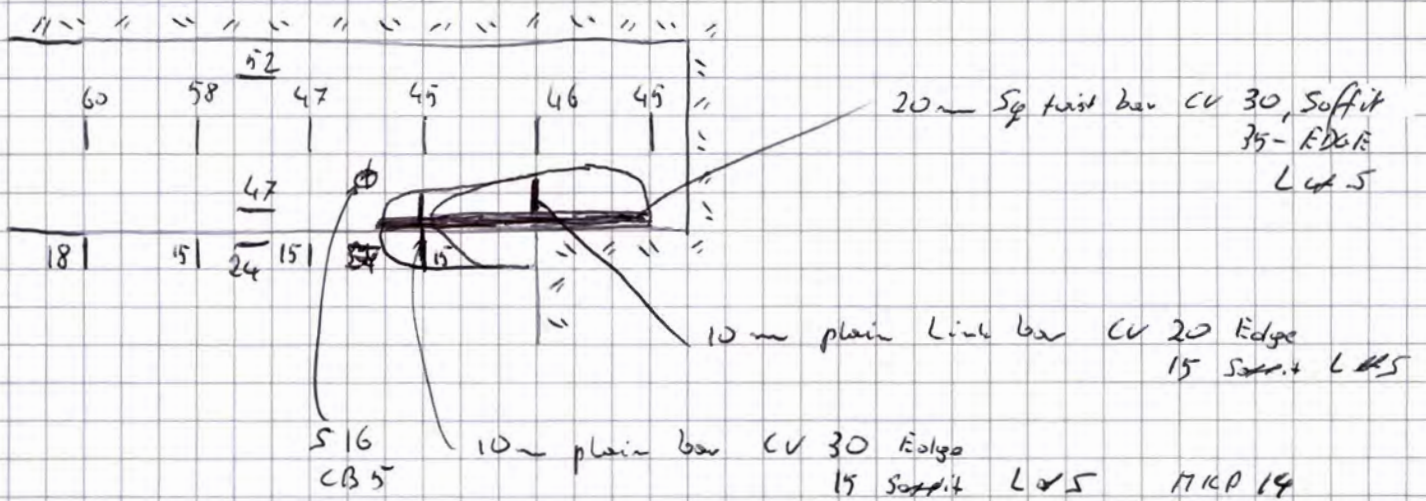 52
60 58 47 45 46 45
20mm Sq twist bar CV 30, Soffit
35 - EDGE
L of S
47
18 15 24 15 15
10mm plain Link bar CV 20 Edge
15 Soffit L of S
S 16
CB 5
10mm plain bar CV 30 Edge
15 Soffit L of S MKP 14